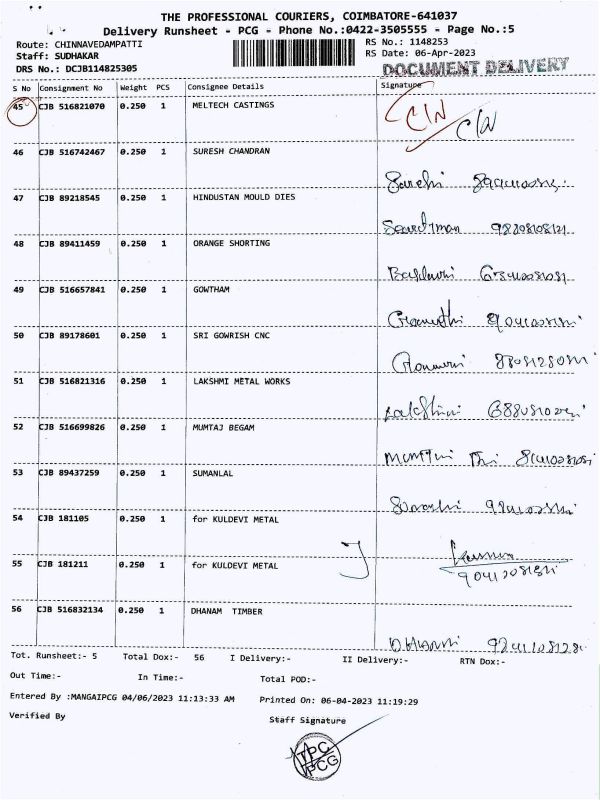 THE PROFESSIONAL COURIERS, COIMBATORE-641037
Delivery Runsheet - PCG - Phone No.:0422-3505555 - Page No.:5
Route: CHINNAVEDAMPATTI RS No.: 1148253
Staff: SUDHAKAR RS Date: 06-Apr-2023
DRS No.: DCJB114825305 DOCUMENT DELIVERY
S No Consignment No Weight PCS Consignee Details Signature
45 CJB 516821070 0.250 1 MELTECH CASTINGS C/N C/N
46 CJB 516742467 0.250 1 SURESH CHANDRAN
47 CJB 89218545 0.250 1 HINDUSTAN MOULD DIES
48 CJB 89411459 0.250 1 ORANGE SHORTING
49 CJB 516657841 0.250 1 GOWTHAM
50 CJB 89178601 0.250 1 SRI GOWRISH CNC
51 CJB 516821316 0.250 1 LAKSHMI METAL WORKS
52 CJB 516699826 0.250 1 MUMTAJ BEGAM
53 CJB 89437259 0.250 1 SUMANLAL
54 CJB 181105 0.250 1 for KULDEVI METAL
55 CJB 181211 0.250 1 for KULDEVI METAL
56 CJB 516832134 0.250 1 DHANAM TIMBER
Tot. Runsheet:- 5 Total Dox:- 56 I Delivery:- II Delivery:- RTN Dox:-
Out Time:- In Time:- Total POD:-
Entered By :MANGAIPCG 04/06/2023 11:13:33 AM Printed On: 06-04-2023 11:19:29
Verified By Staff Signature
TPC
PCG